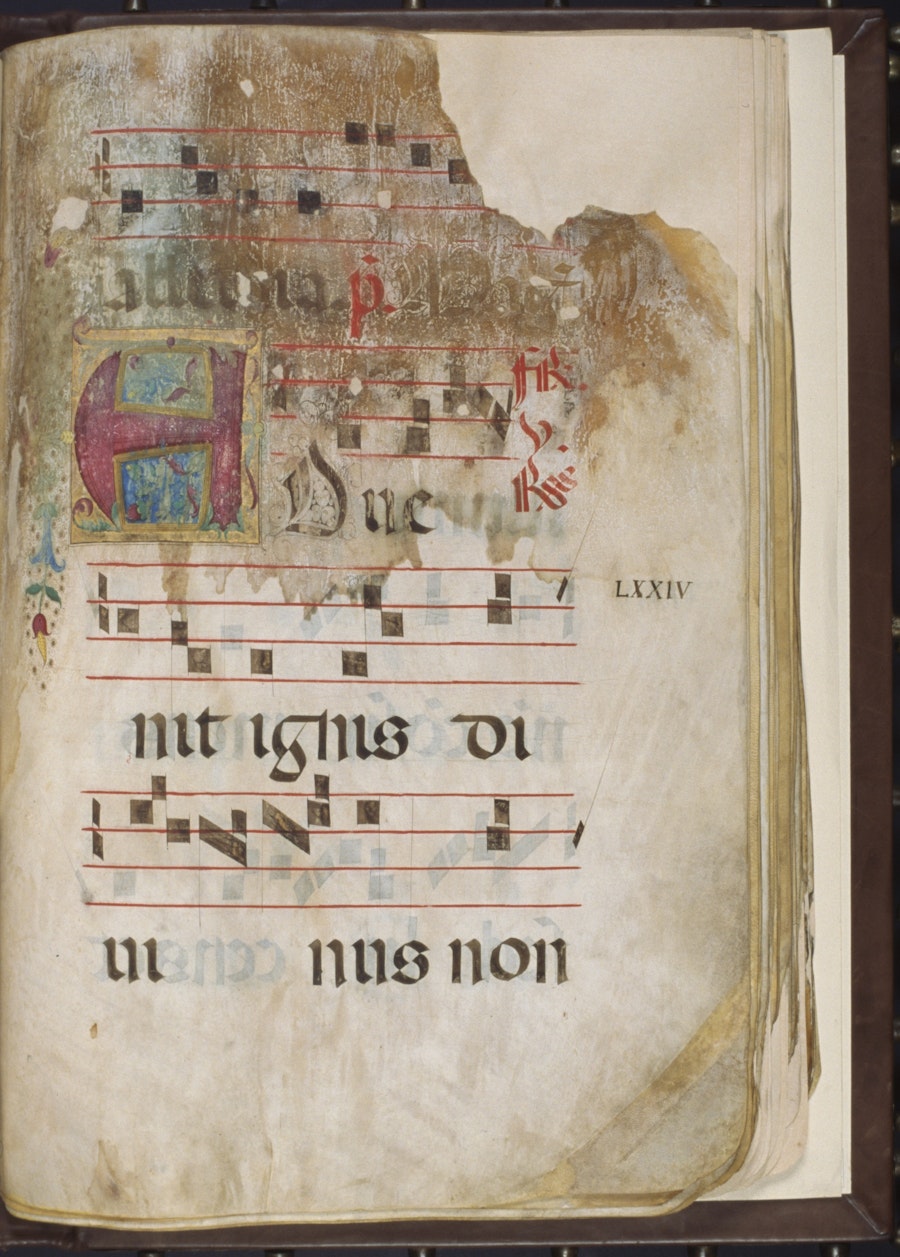 alleluia. p̄.
ADue
LXXIV
nit ignis di
ui nus non